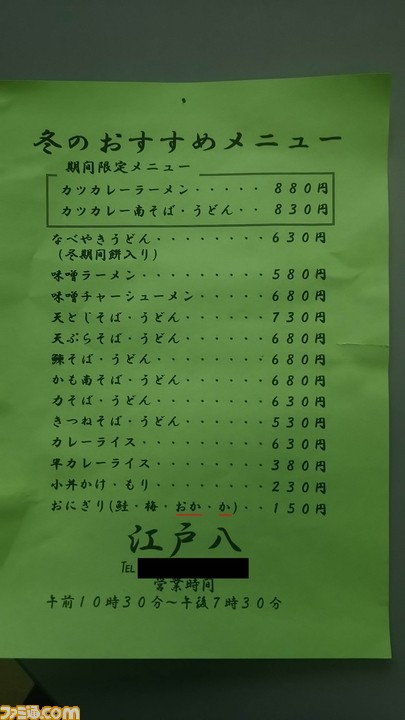 冬のおすすめメニュー
期間限定メニュー
カツカレーラーメン・・・・・880円
カツカレー南そば・うどん・・830円
なべやきうどん・・・・・・・・630円
(冬期間餅入り)
味噌ラーメン・・・・・・・・・580円
味噌チャーシューメン・・・・・680円
天とじそば・うどん・・・・・・730円
天ぷらそば・うどん・・・・・・680円
鰊そば・うどん・・・・・・・・680円
かも南そば・うどん・・・・・・680円
力そば・うどん・・・・・・・・630円
きつねそば・うどん・・・・・・530円
カレーライス・・・・・・・・・630円
半カレーライス・・・・・・・・380円
小丼かけ・もり・・・・・・・・230円
おにぎり(鮭・梅・おか・か)・・150円
江戸八
TEL
営業時間
午前10時30分〜午後7時30分
ファミ通.com